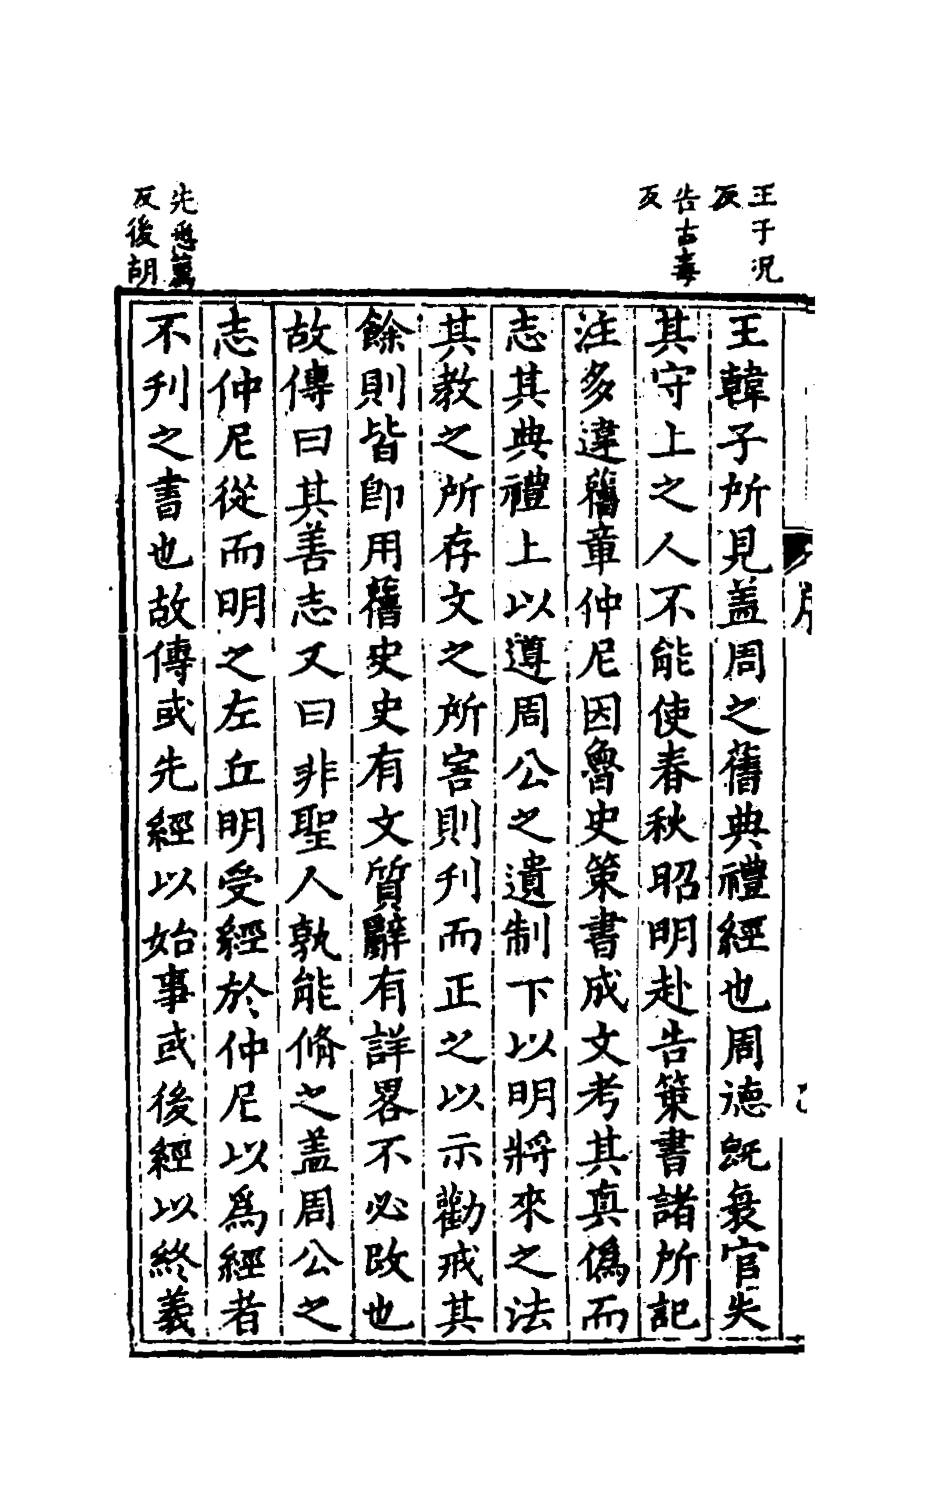 王于況
反
告古毒
反
先悉薦
反後胡
王韓子所見盖周之舊典禮經也周德旣衰官失
其守上之人不能使春秋昭明赴告策書諸所記
注多違舊章仲尼因魯史策書成文考其真偽而
志其典禮上以遵周公之遺制下以明將來之法
其教之所存文之所害則刋而正之以示勸戒其
餘則皆即用舊史史有文質辭有詳畧不必改也
故傳曰其善志又曰非聖人孰能脩之盖周公之
志仲尼從而明之左丘明受經於仲尼以爲經者
不刋之書也故傳或先經以始事或後經以終義